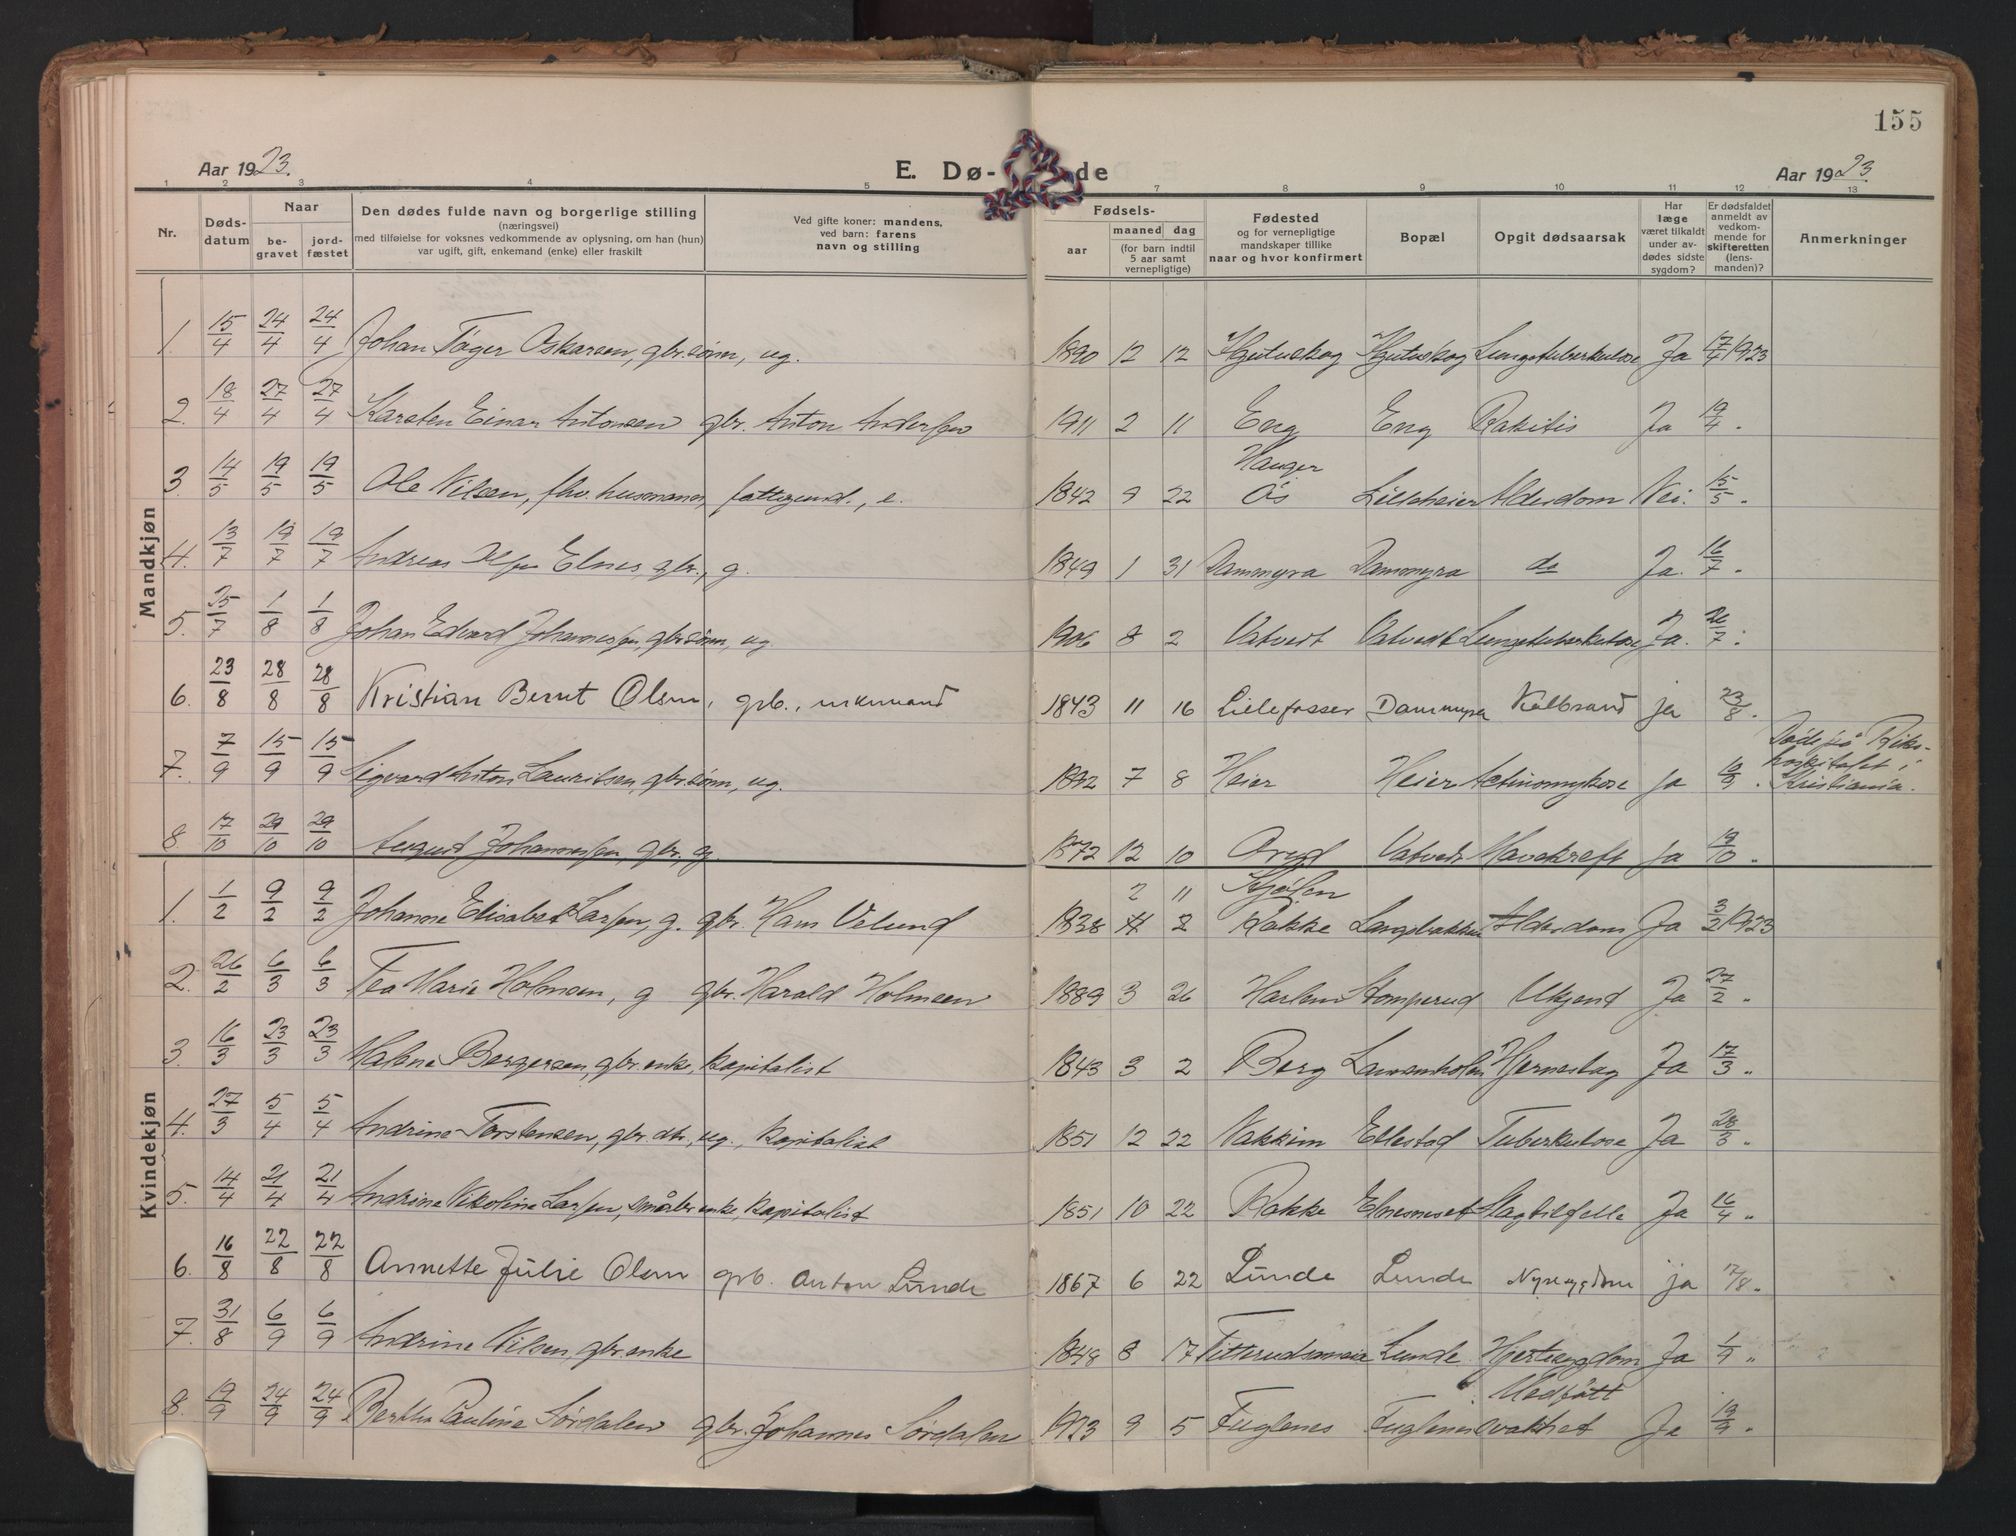 155
Aar 1923. E. Dø- de Aar 1923
1 2 3 4 5 7 8 9 10 11 12 13
Nr. Døds-datum Naar be-gravet jord-fæstet Den dødes fulde navn og borgerlige stilling (næringsvei) med tilføielse for voksnes vedkommende av oplysning, om han (hun) var ugift, gift, enkemand (enke) eller fraskilt Ved gifte koner: mandens, ved barn: farens navn og stilling Fødsels- aar maaned dag (for barn indtil 5 aar samt vernepligtige) Fødested og for vernepligtige mandskaper tillike naar og hvor konfirmert Bopæl Opgit dødsaarsak Har læge været tilkaldt under av-dødes sidste sygdom? Er dødsfaldet anmeldt av vedkom-mende for skifteretten (lens-manden)? Anmerkninger
Mandkjøn
1. 15/4 24/4 24/4 Johan Tager Oskarsen, gbr.sønn, ug. 1890 12 12 Lungetuberkulose Ja 17/4 1923
2. 18/4 27/4 27/4 Karsten Einar Antonsen gbr. Anton Andersen 1911 2 11 Eng Eng Rakitis Ja 19/4 "
3. 14/5 19/5 19/5 Ole Nilsen, fhv. husmann, fattigund., e. 1842 9 22 Hauger Ås Lilleheier Alderdom Nei. 15/5 "
4. 13/7 19/7 19/7 Andreas Olsen Elnes, gbr., g. 1849 1 31 Dammyra Dammyra do Ja. 16/7 "
5. 25/7 1/8 1/8 Johan Edvard Johannessen, gbr.sønn, ug. 1906 8 2 Vatvedt Vatvedt Lungetuberkulose Ja. 26/7 "
6. 23/8 28/8 28/8 Kristian Bernt Olsen, grb., enkemand 1843 11 16 Lillefosser Dammyra Kolbrand ja 23/8.
7. 7/9 15/9 15/9 Sigvard Anton Lauritsen, gbr.sønn, ug. 7 8 Heier Heier Actinomykose Ja 10/9. Døde på Riks-hospitalet i Kristiania.
8. 17/10 29/10 29/10 August Johannessen, gbr. g. 1872 12 10 Vatvedt Mavekreft Ja 19/10.
Kvindekjøn
1. 1/2 9/2 9/2 Johanne Elisabet Larsen, g. gbr. Hans Velund 1838 2 11 Rakke Langebakken Alderdom Ja 3/2 1923
2. 26/2 6/3 6/3 Tea Marie Holmsen, g gbr. Harald Holmsen 1889 3 26 Harlem Stomperud Ukjend Ja 27/2 "
3. 16/3 23/3 23/3 Halene Bergersen, gbr.enke, kapitalist 1843 3 2 Berg Hjerneslag Ja 17/3 "
4. 27/3 5/4 5/4 Andrine Torstensen, gbr. dtr., ug., kapitalist 1851 12 22 Vakkim Ellestad Tuberkulose Ja 28/3 "
5. 14/4 21/4 21/4 Andrine Nikoline Larsen, småbr.enke, kapitalist 1851 10 22 Rakke Elnesneset Slagtilfelle Ja 16/4 "
6. 16/8 22/8 22/8 Annette Julie Olsen grb. Anton Lunde 1867 6 22 Lunde Lunde Nyresygdom ja 17/8 "
7. 31/8 6/9 6/9 Andrine Nilsen, gbr.enke 1848 8 17 Lunde Hjertesygdom Ja 1/9 "
8. 19/9 24/9 24/9 Bertha Pauline Sørdalen gbr. Johannes Sørdalen 1923 9 5 Fuglenes Fuglenes Medfått svakhet Ja 19/9 "